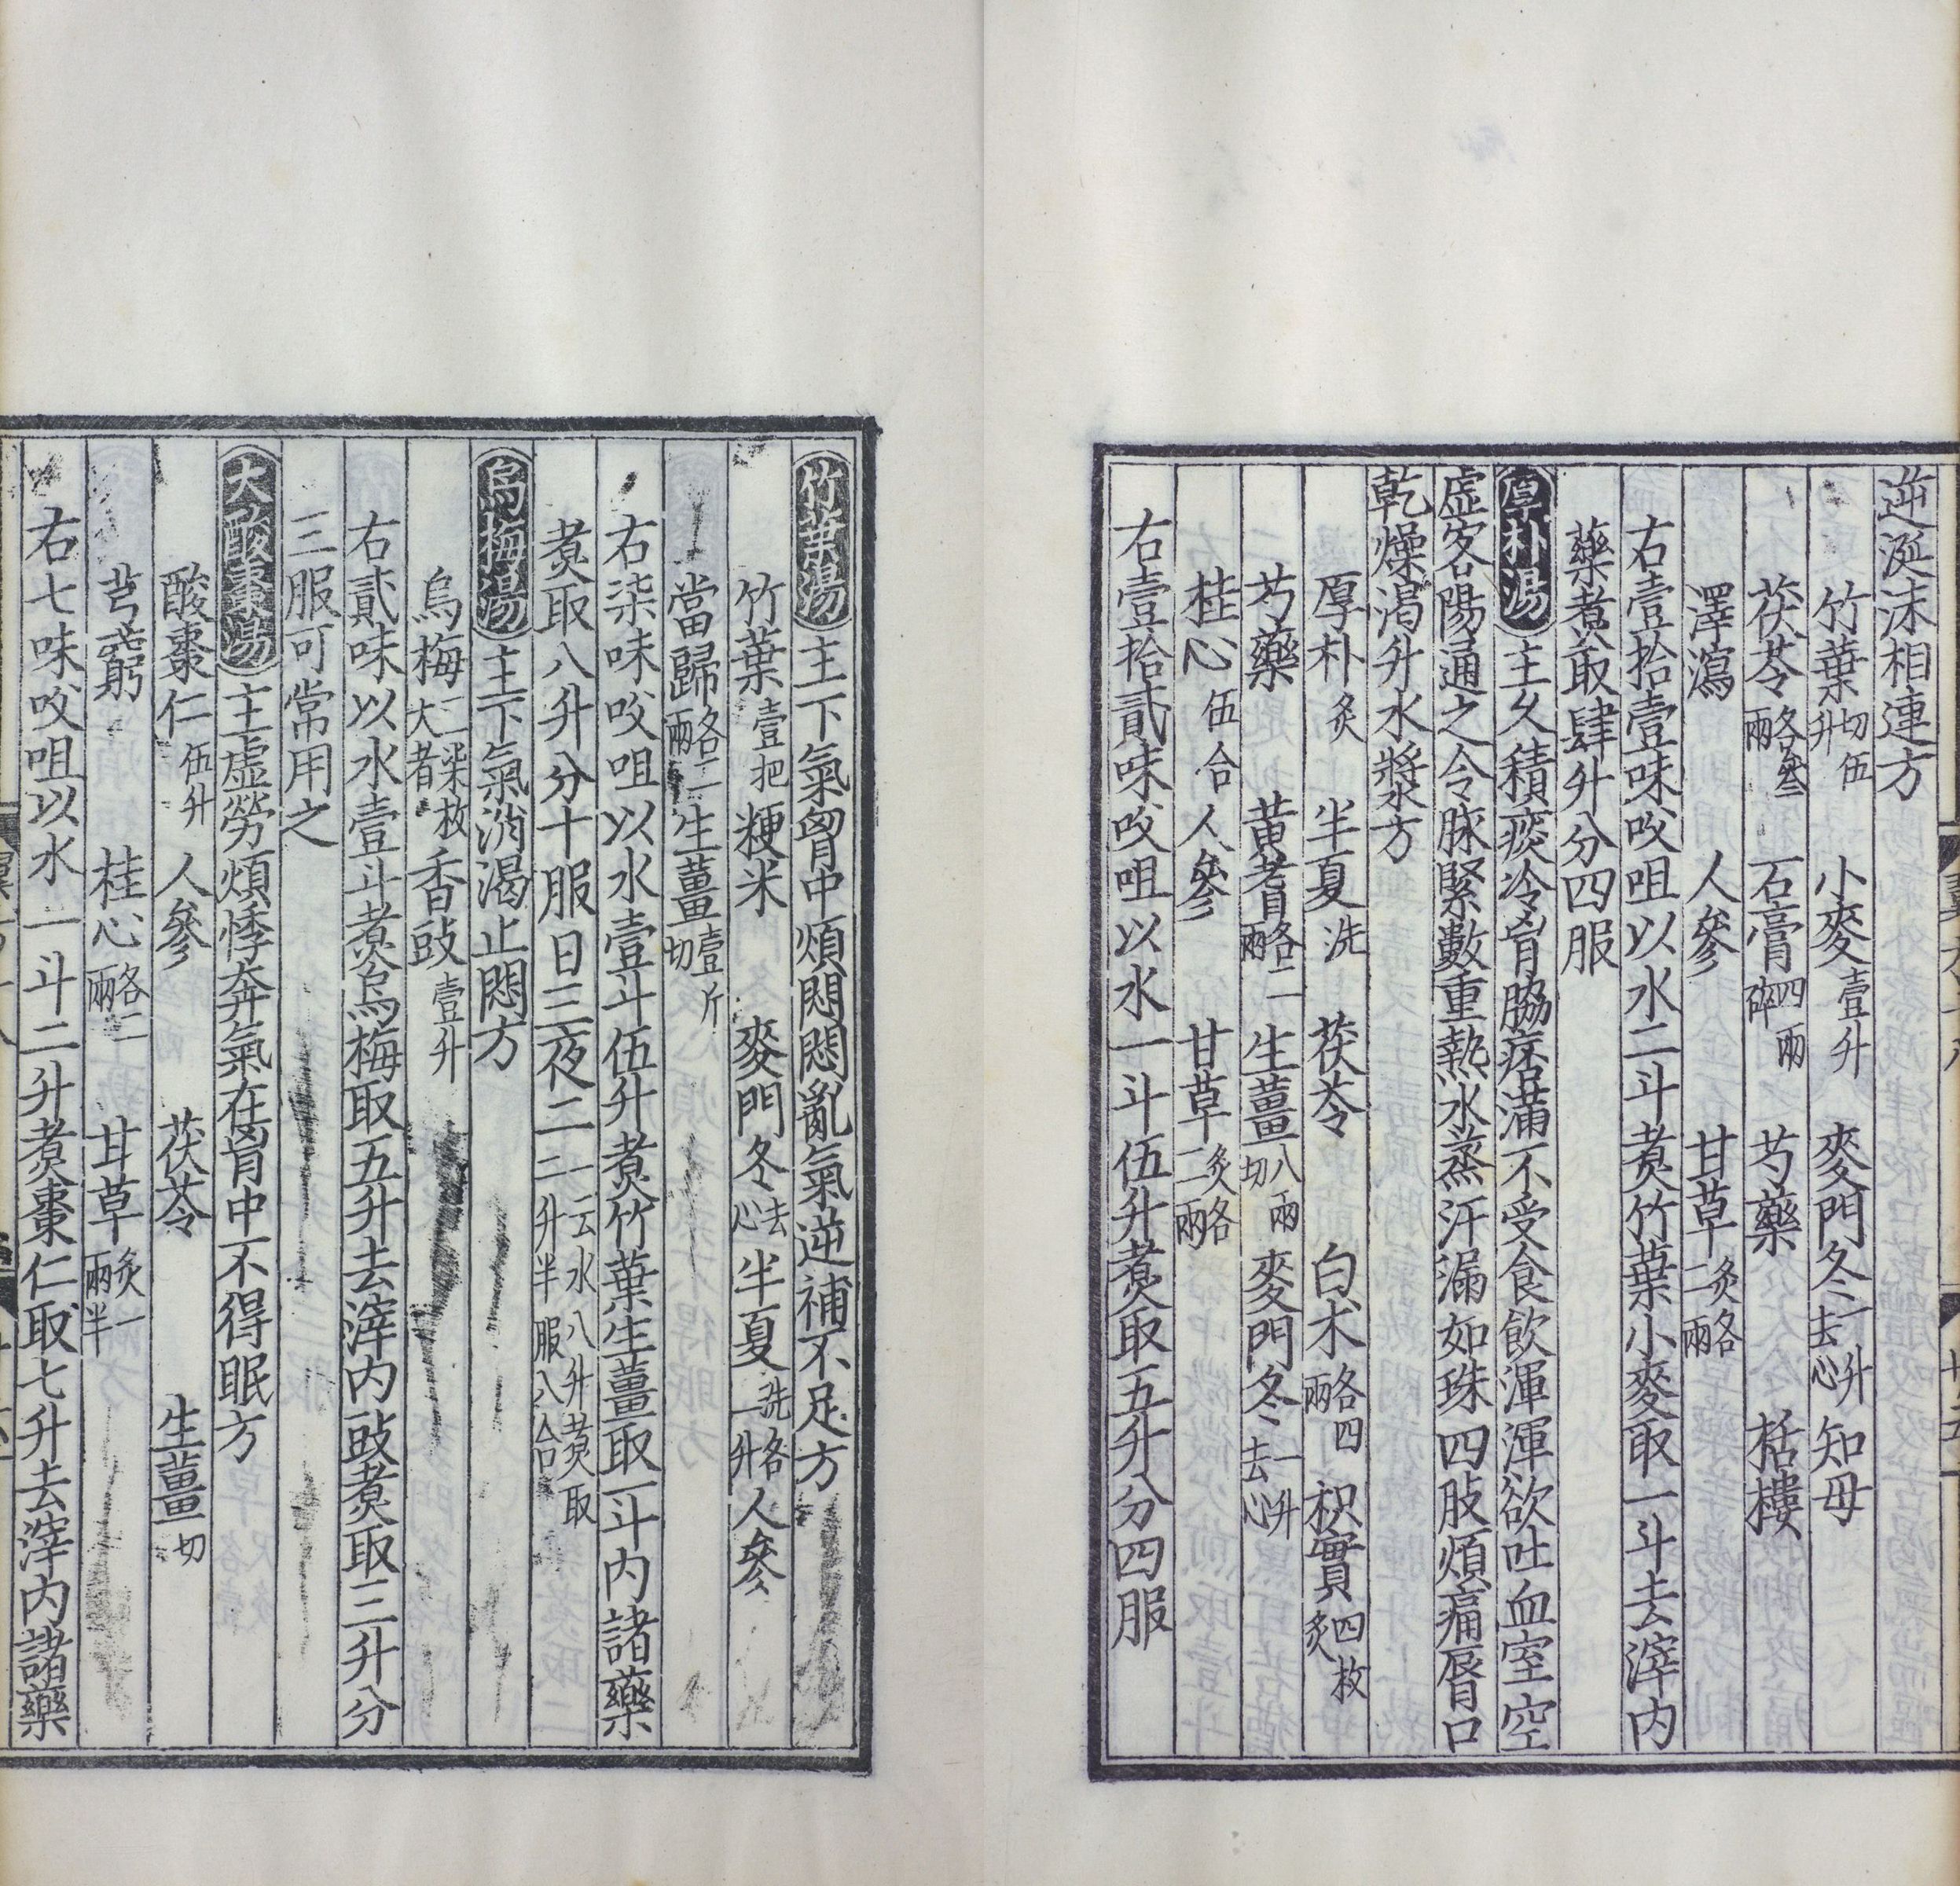 逆涎沫相連方
竹葉切伍升 小麥壹升 麥門冬一升去心 知母
茯苓各叁兩 石膏四兩碎 芍藥 栝樓
澤瀉 人參 甘草炙各二兩
右壹拾壹味㕮咀以水二斗煮竹葉小麥取一斗去滓内
藥煮取肆升分四服
厚朴湯主久積痰冷胷脇痞滿不受食飲渾渾欲吐血室空
虛客陽通之令脉緊數重熱水蒸汗漏如珠四肢煩痛脣口
乾燥渴升水漿方
厚朴炙 半夏洗 茯苓 白朮各四兩 枳實四枚炙
芍藥 黄耆各二兩 生薑八兩切 麥門冬一升去心
桂心伍合 人參 甘草炙各二兩
右壹拾貳味㕮咀以水一斗伍升煮取五升分四服
竹葉湯主下氣胷中煩悶悶亂氣逆補不足方
竹葉壹把 粳米 麥門冬去心 半夏洗各一升 人參
當歸各二兩 生薑壹斤切
右柒味㕮咀以水壹斗伍升煮竹葉生薑取一斗内諸藥
煮取八升分十服日三夜二一云水八升煮取二升半服八合
烏梅湯主下氣消渴止悶方
烏梅二柒枚大者 香豉壹升
右貳味以水壹斗煮烏梅取五升去滓内豉煮取三升分
三服可常用之
大酸棗湯主虛勞煩悸奔氣在胷中不得眠方
酸棗仁伍升 人參 茯苓 生薑切
芎藭 桂心各二兩 甘草炙一兩半
右七味㕮咀以水一斗二升煮棗仁取七升去滓内諸藥